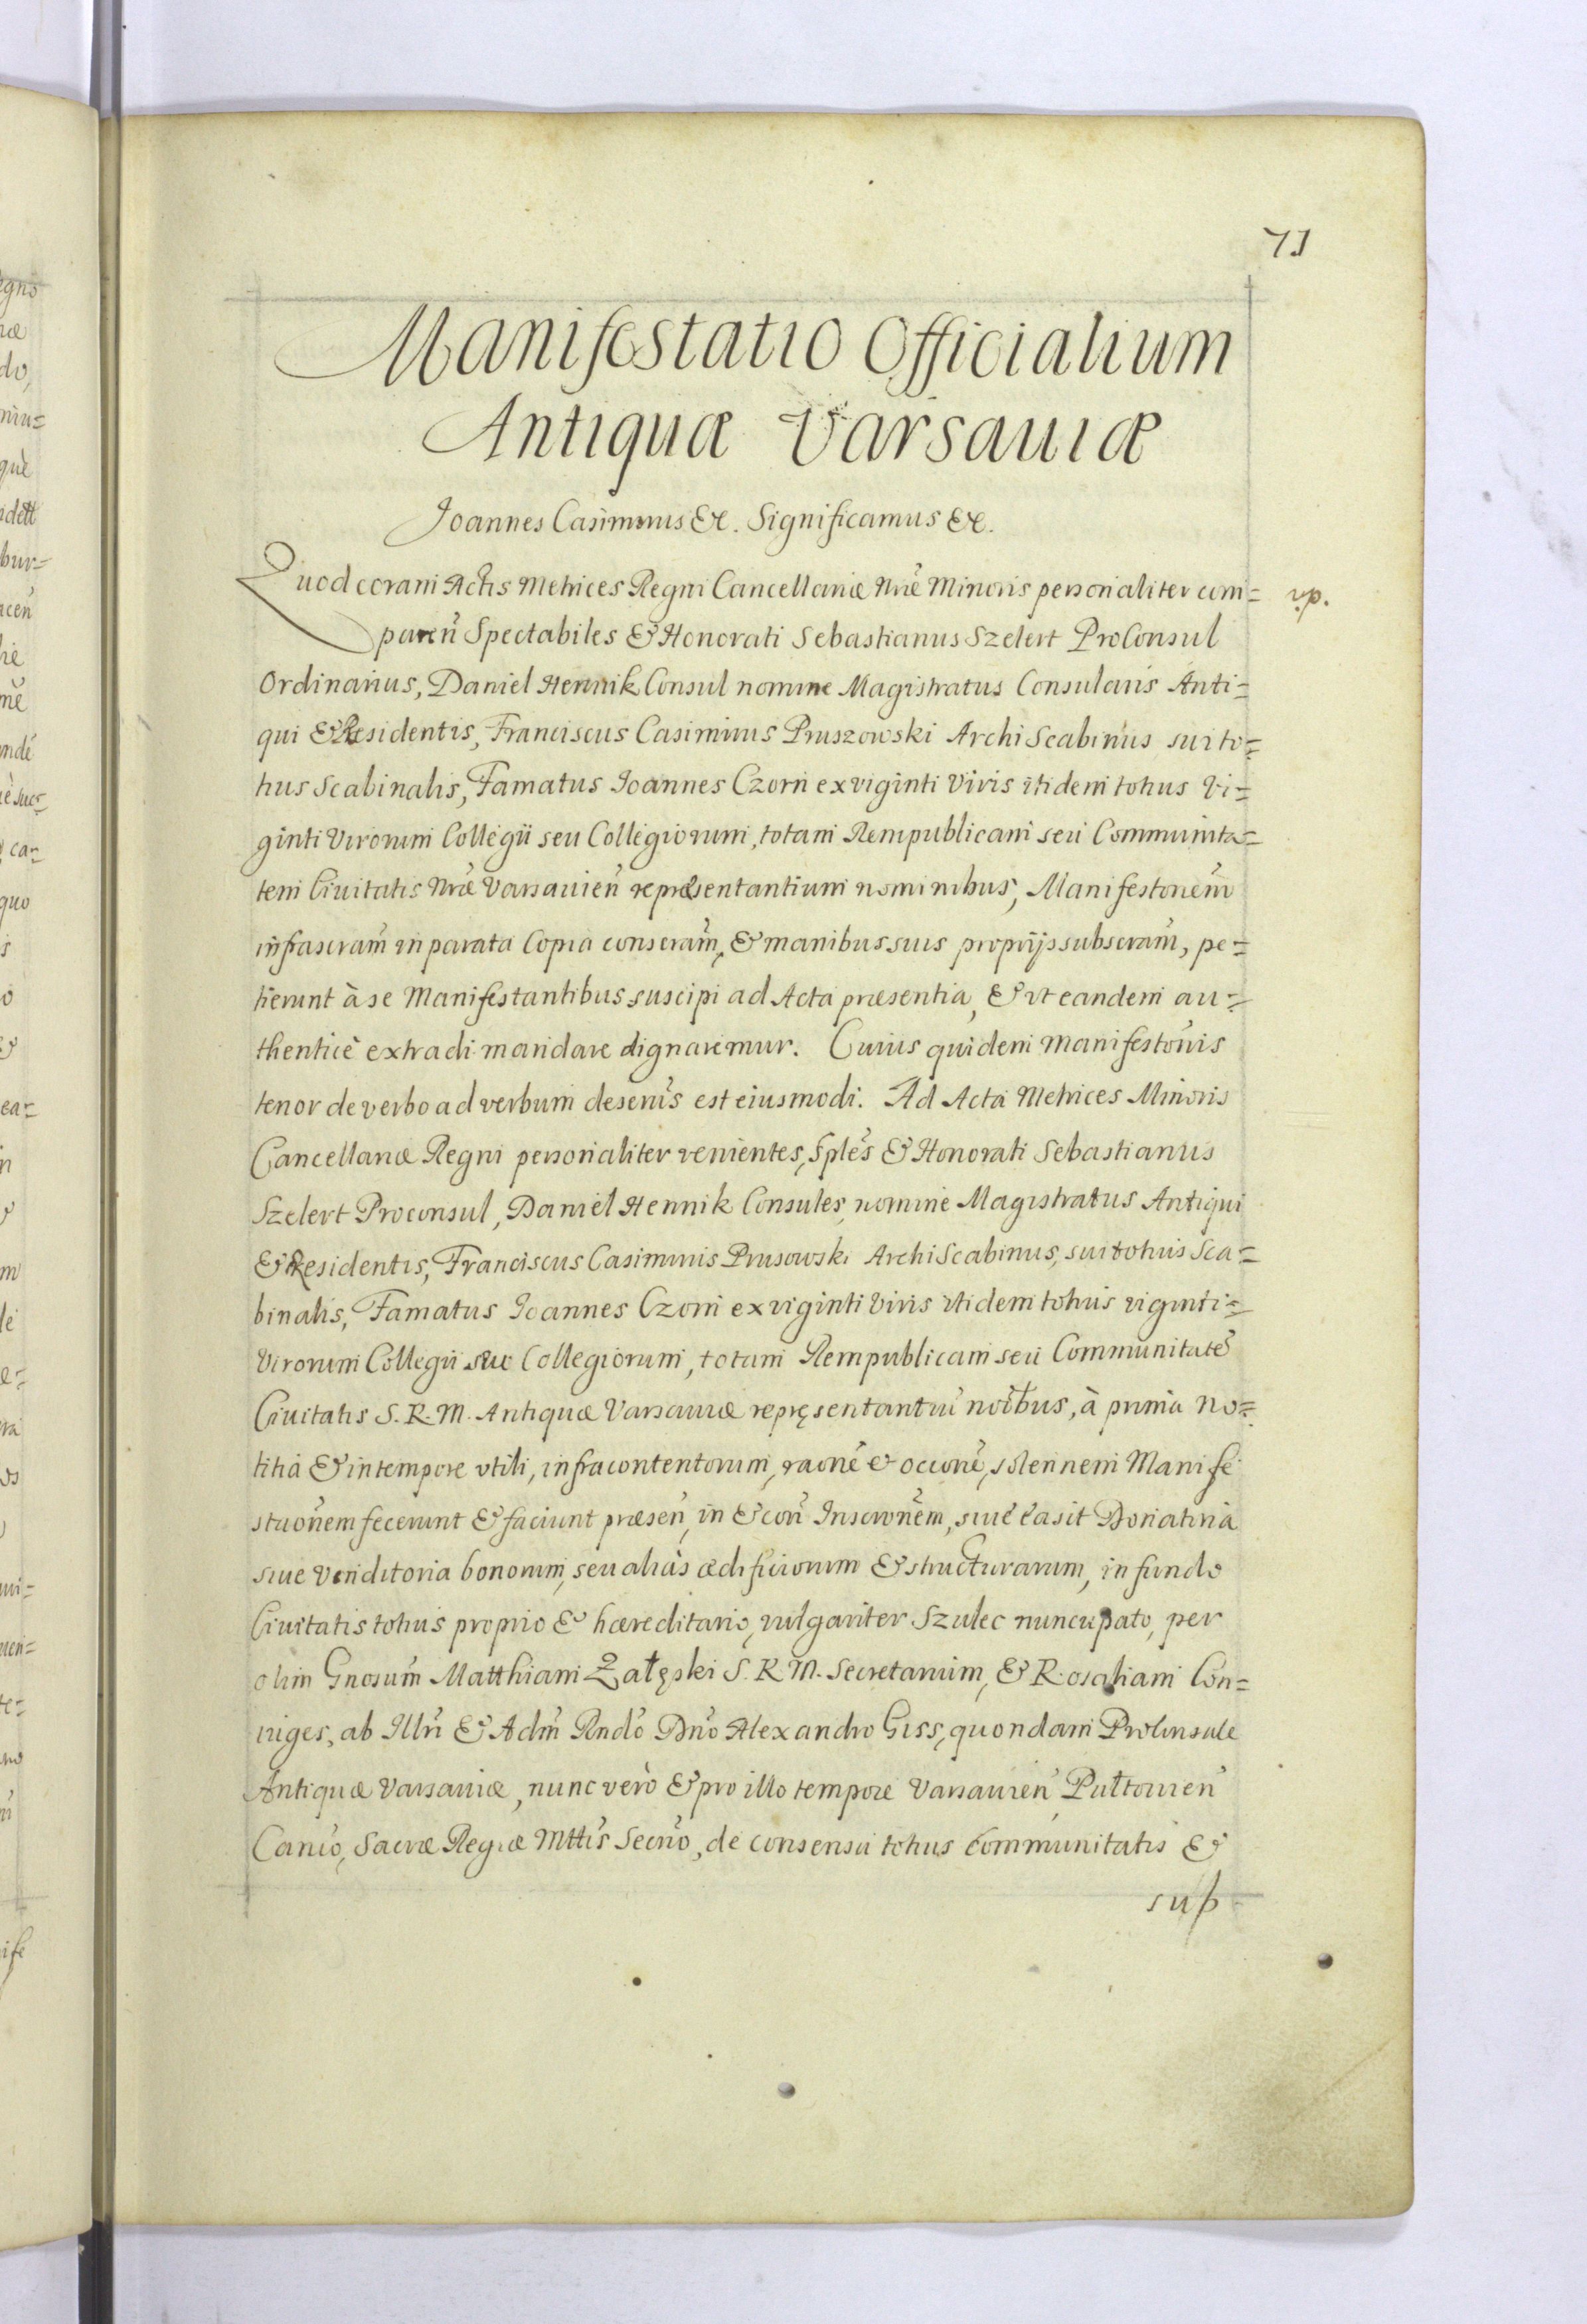 71
Manifestatio Officialium
Antiquæ Varsauiæ
Joannes Casimirus &c. Significamus &c.
Quod coram Actis Metrices Regni Cancellariæ Nræ Minoris personaliter com= ip.
paren̄ Spectabiles & Honorati Sebastianus Szelert ProConsul
Ordinarius, Daniel Hennik Consul nomine Magistratus Consularis Anti=
qui & Residentis, Franciscus Casimirus Pruszowski ArchiScabinus sui to=
tius Scabinalis, Famatus Joannes Czorn ex viginti Viris itidem totius Vi=
ginti Virorum Collegii seu Collegiorum, totam Rempublicam seu Communita=
tem Ciuitatis Nræ Varsauien̄ repræsentantium nominibus, Manifestonem̄
infrascram̄ in parata Copia conscram̄, & manibus suis proprijs subscram̄, pe=
tierunt à se Manifestantibus suscipi ad Acta præsentia, & vt eandem au=
thenticè extradi mandare dignaremur. Cuius quidem Manifestōnis
tenor de verbo ad verbum descrīs est eiusmodi. Ad Acta Metrices Minoris
Cancellariæ Regni personaliter venientes, Splēs & Honorati Sebastianus
Szelert Proconsul, Daniel Hennik Consules, nomine Magistratus Antiqui
& Residentis, Franciscus Casimirus Prusowski ArchiScabinus, sui totius Sca=
binalis, Famatus Joannes Czorn ex viginti Viris itidem totius viginti=
Virorum Collegii seu Collegiorum, totam Rempublicam seu Communitatē
Ciuitatis S. R. M. Antiquæ Varsauiæ repręsentantiū noībus, à prima no=
titia & in tempore vtili, infracontentorum, raōne & occōne, solennem Manife
staōnem fecerunt & faciunt præsen̄, in & con̄ Inscrōnem, siue ea sit Donatiua
siue Venditoria bonorum, seu aliàs ædificiorum & structurarum, in fundo
Ciuitatis totius proprio & hæreditario, vulgariter Szulec nuncupato, per
olim Gnosum̄ Matthiam Załęski S. R. M. Secretarium, & Rosaliam Con=
iuges, ab Illrī & Adm̄ Rndō Dnō Alexandro Giss, quondam ProConsule
Antiquæ Varsauiæ, nunc verò & pro illo tempore Varsauien̄ Pułtouien̄
Canco, Sacræ Regiæ Mttīs Secrīo, de consensu totius Communitatis &
sup